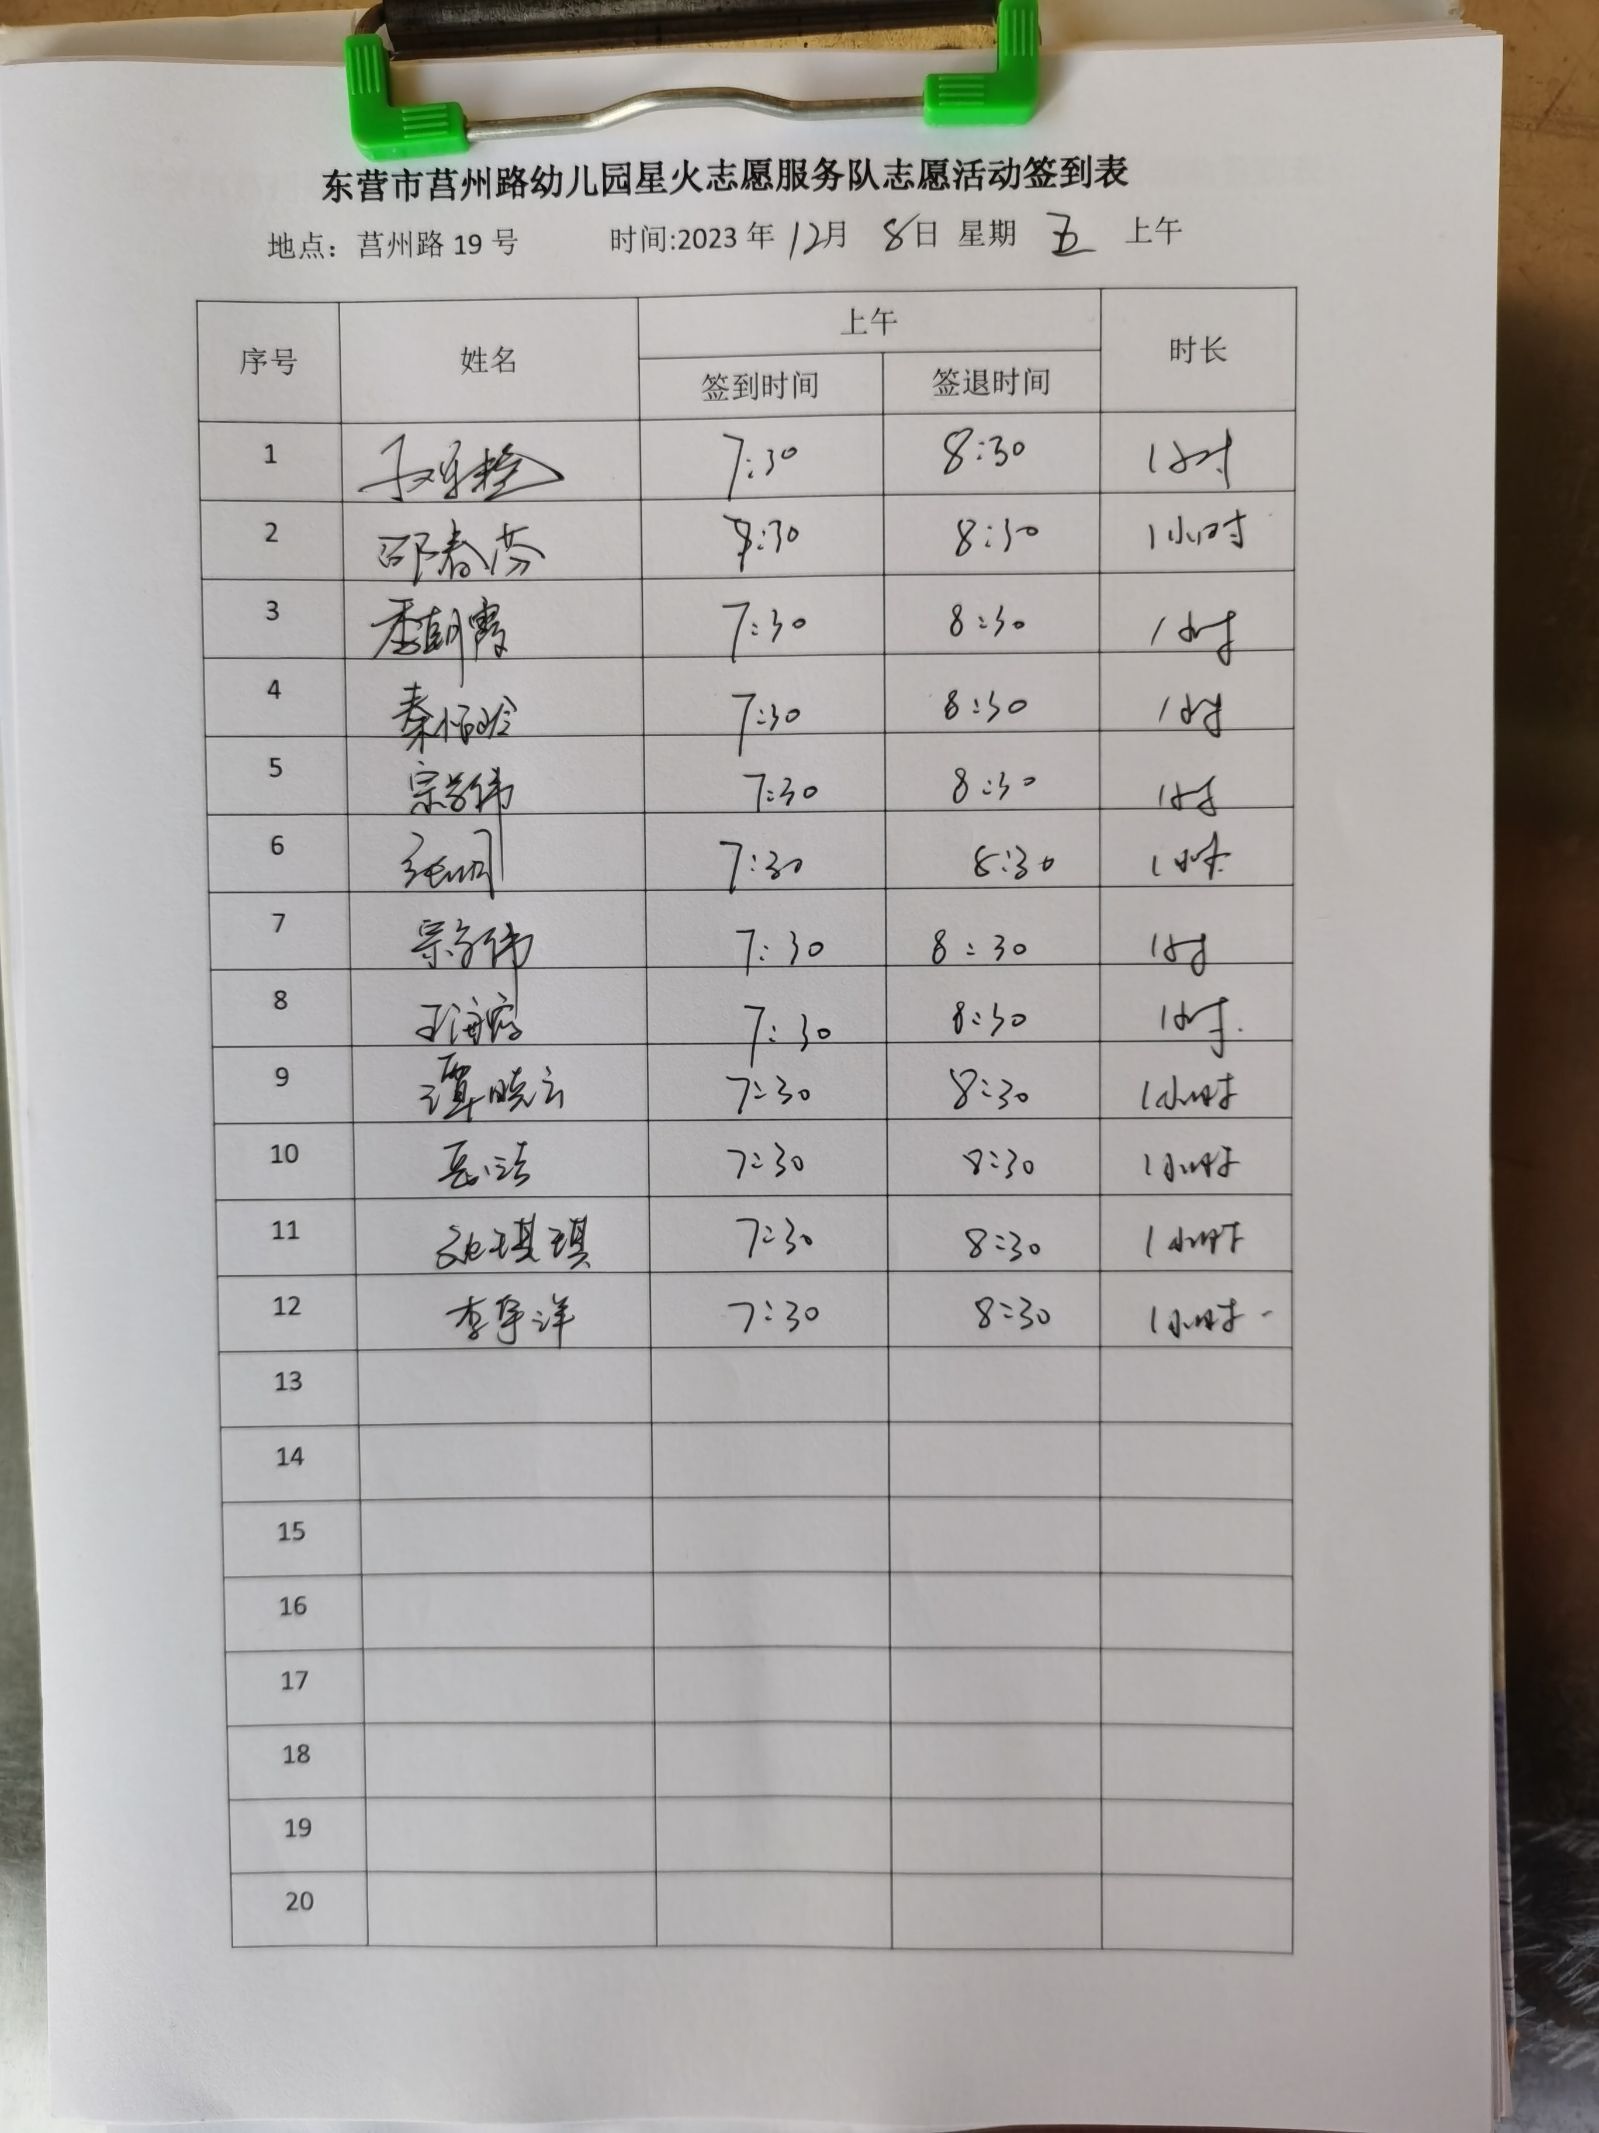 东营市莒州路幼儿园星火志愿服务队志愿活动签到表
地点：莒州路 19 号 时间:2023 年 12月 8日 星期 五 上午
序号 姓名 上午 时长
签到时间 签退时间
1 7:30 8:30 1小时
2 邵春芬 7:30 8:30 1小时
3 季朝霞 7:30 8:30 1小时
4 7:30 8:30 1小时
5 宗学伟 7:30 8:30 1小时
6 7:30 8:30 1小时
7 宗学伟 7:30 8:30 1小时
8 7:30 8:30 1小时
9 谭晓云 7:30 8:30 1小时
10 7:30 8:30 1小时
11 琪琪 7:30 8:30 1小时
12 李宇洋 7:30 8:30 1小时
13
14
15
16
17
18
19
20